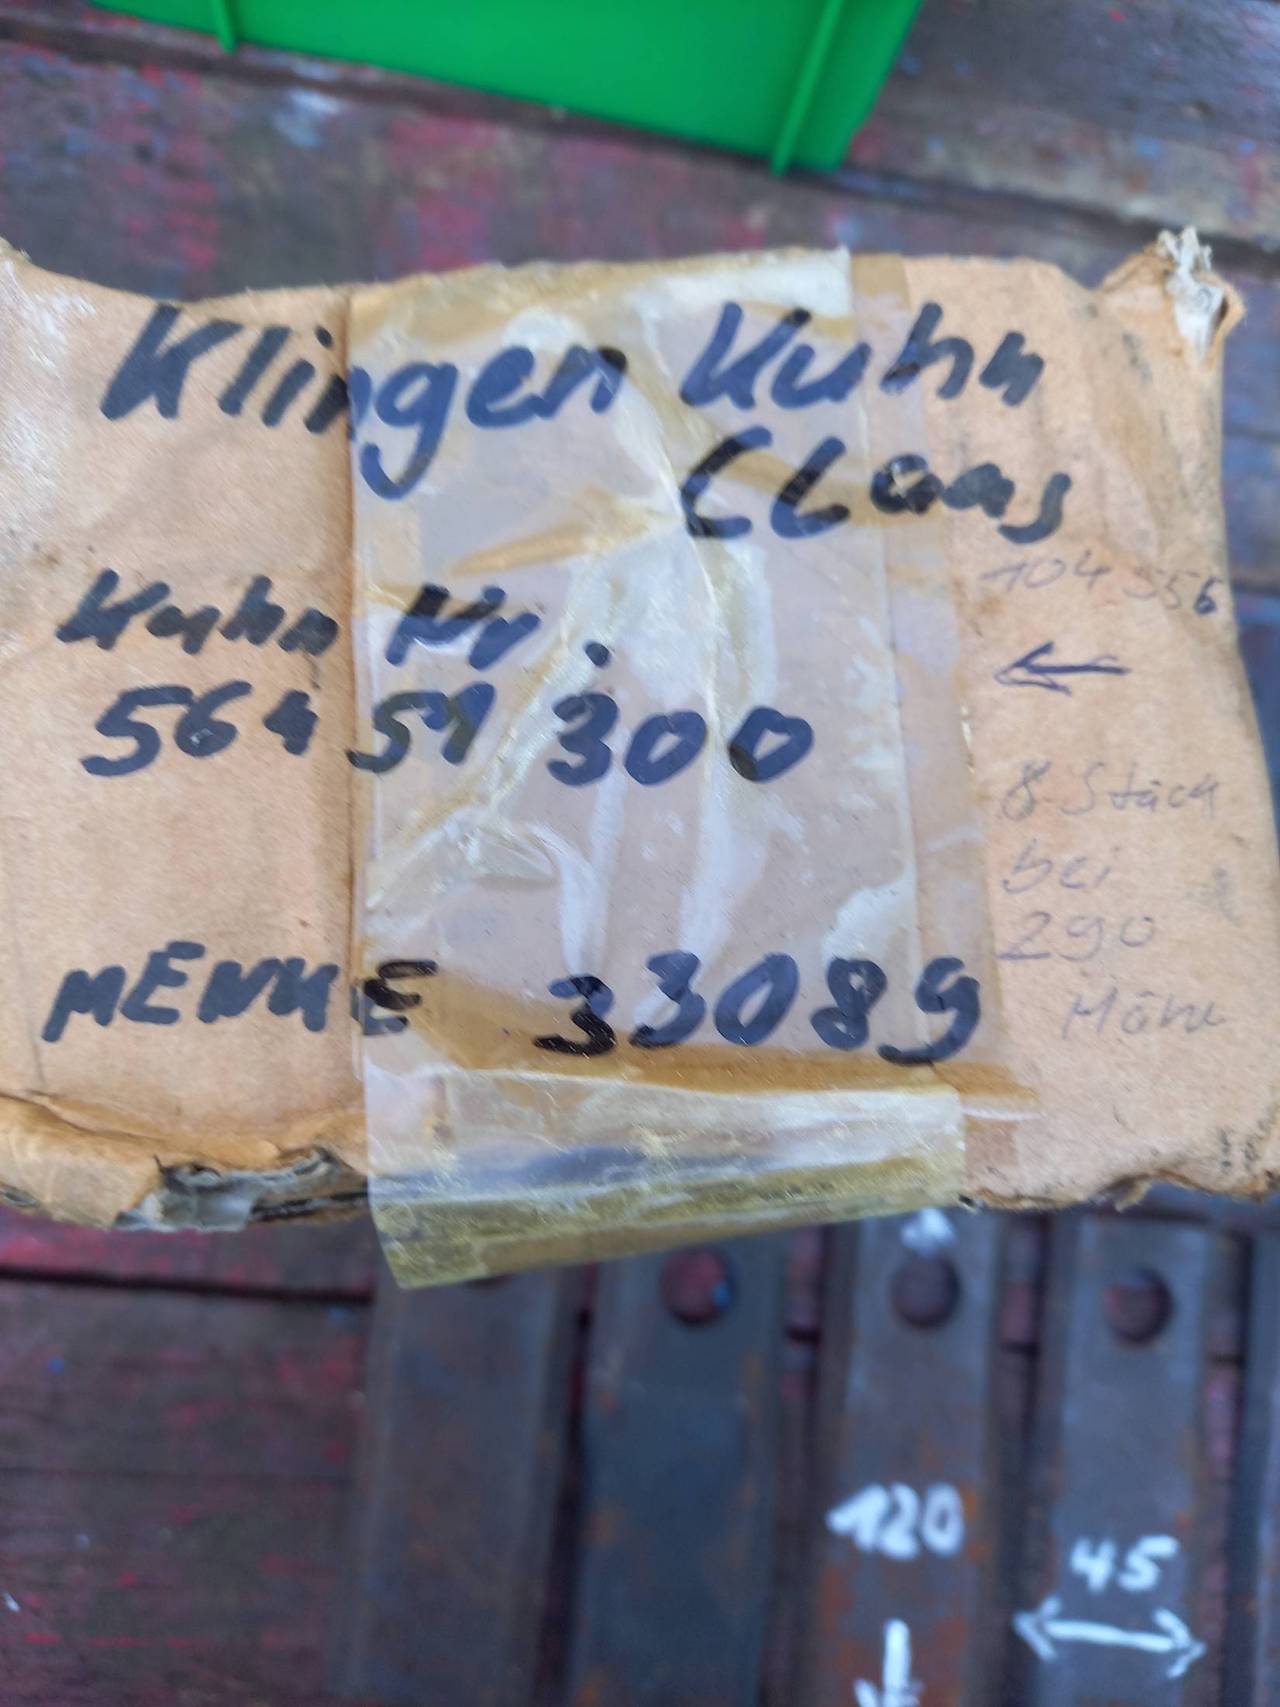 Klingen Kuhn
CLaas
Kuhn Nr.
564 51 300
104 556
←
8 Stück
bei
290
Mähw
MENKE 33089
120
45